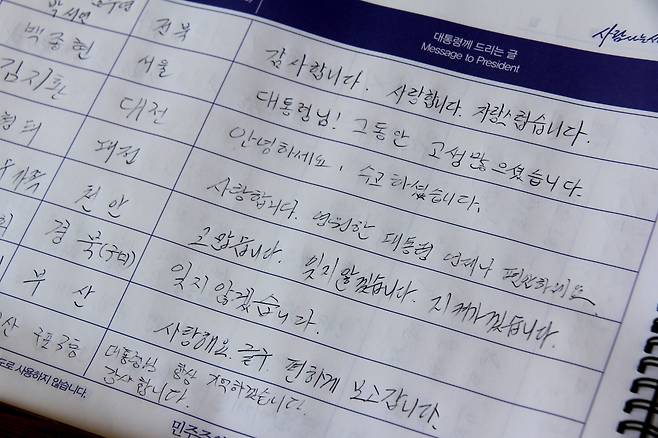 대통령께 드리는 글
Message to President
사람사는세
전북
백종현 서울 감사합니다. 사랑합니다. 자랑스럽습니다.
김지환 대전 대통령님! 그동안 고생많으셨습니다.
대전 안녕하세요, 수고하셨습니다.
천안 사랑합니다. 영원한 대통령 언제나 편안하세요.
경북(구미) 고맙습니다. 잊지 않겠습니다. 지켜가겠습니다.
부산 잊지 않겠습니다.
사랑해요. 글구 편하게 보고갑니다.
대통령님 항상 기억하겠습니다.
감사합니다.
도로 사용하지 않습니다.
민주주